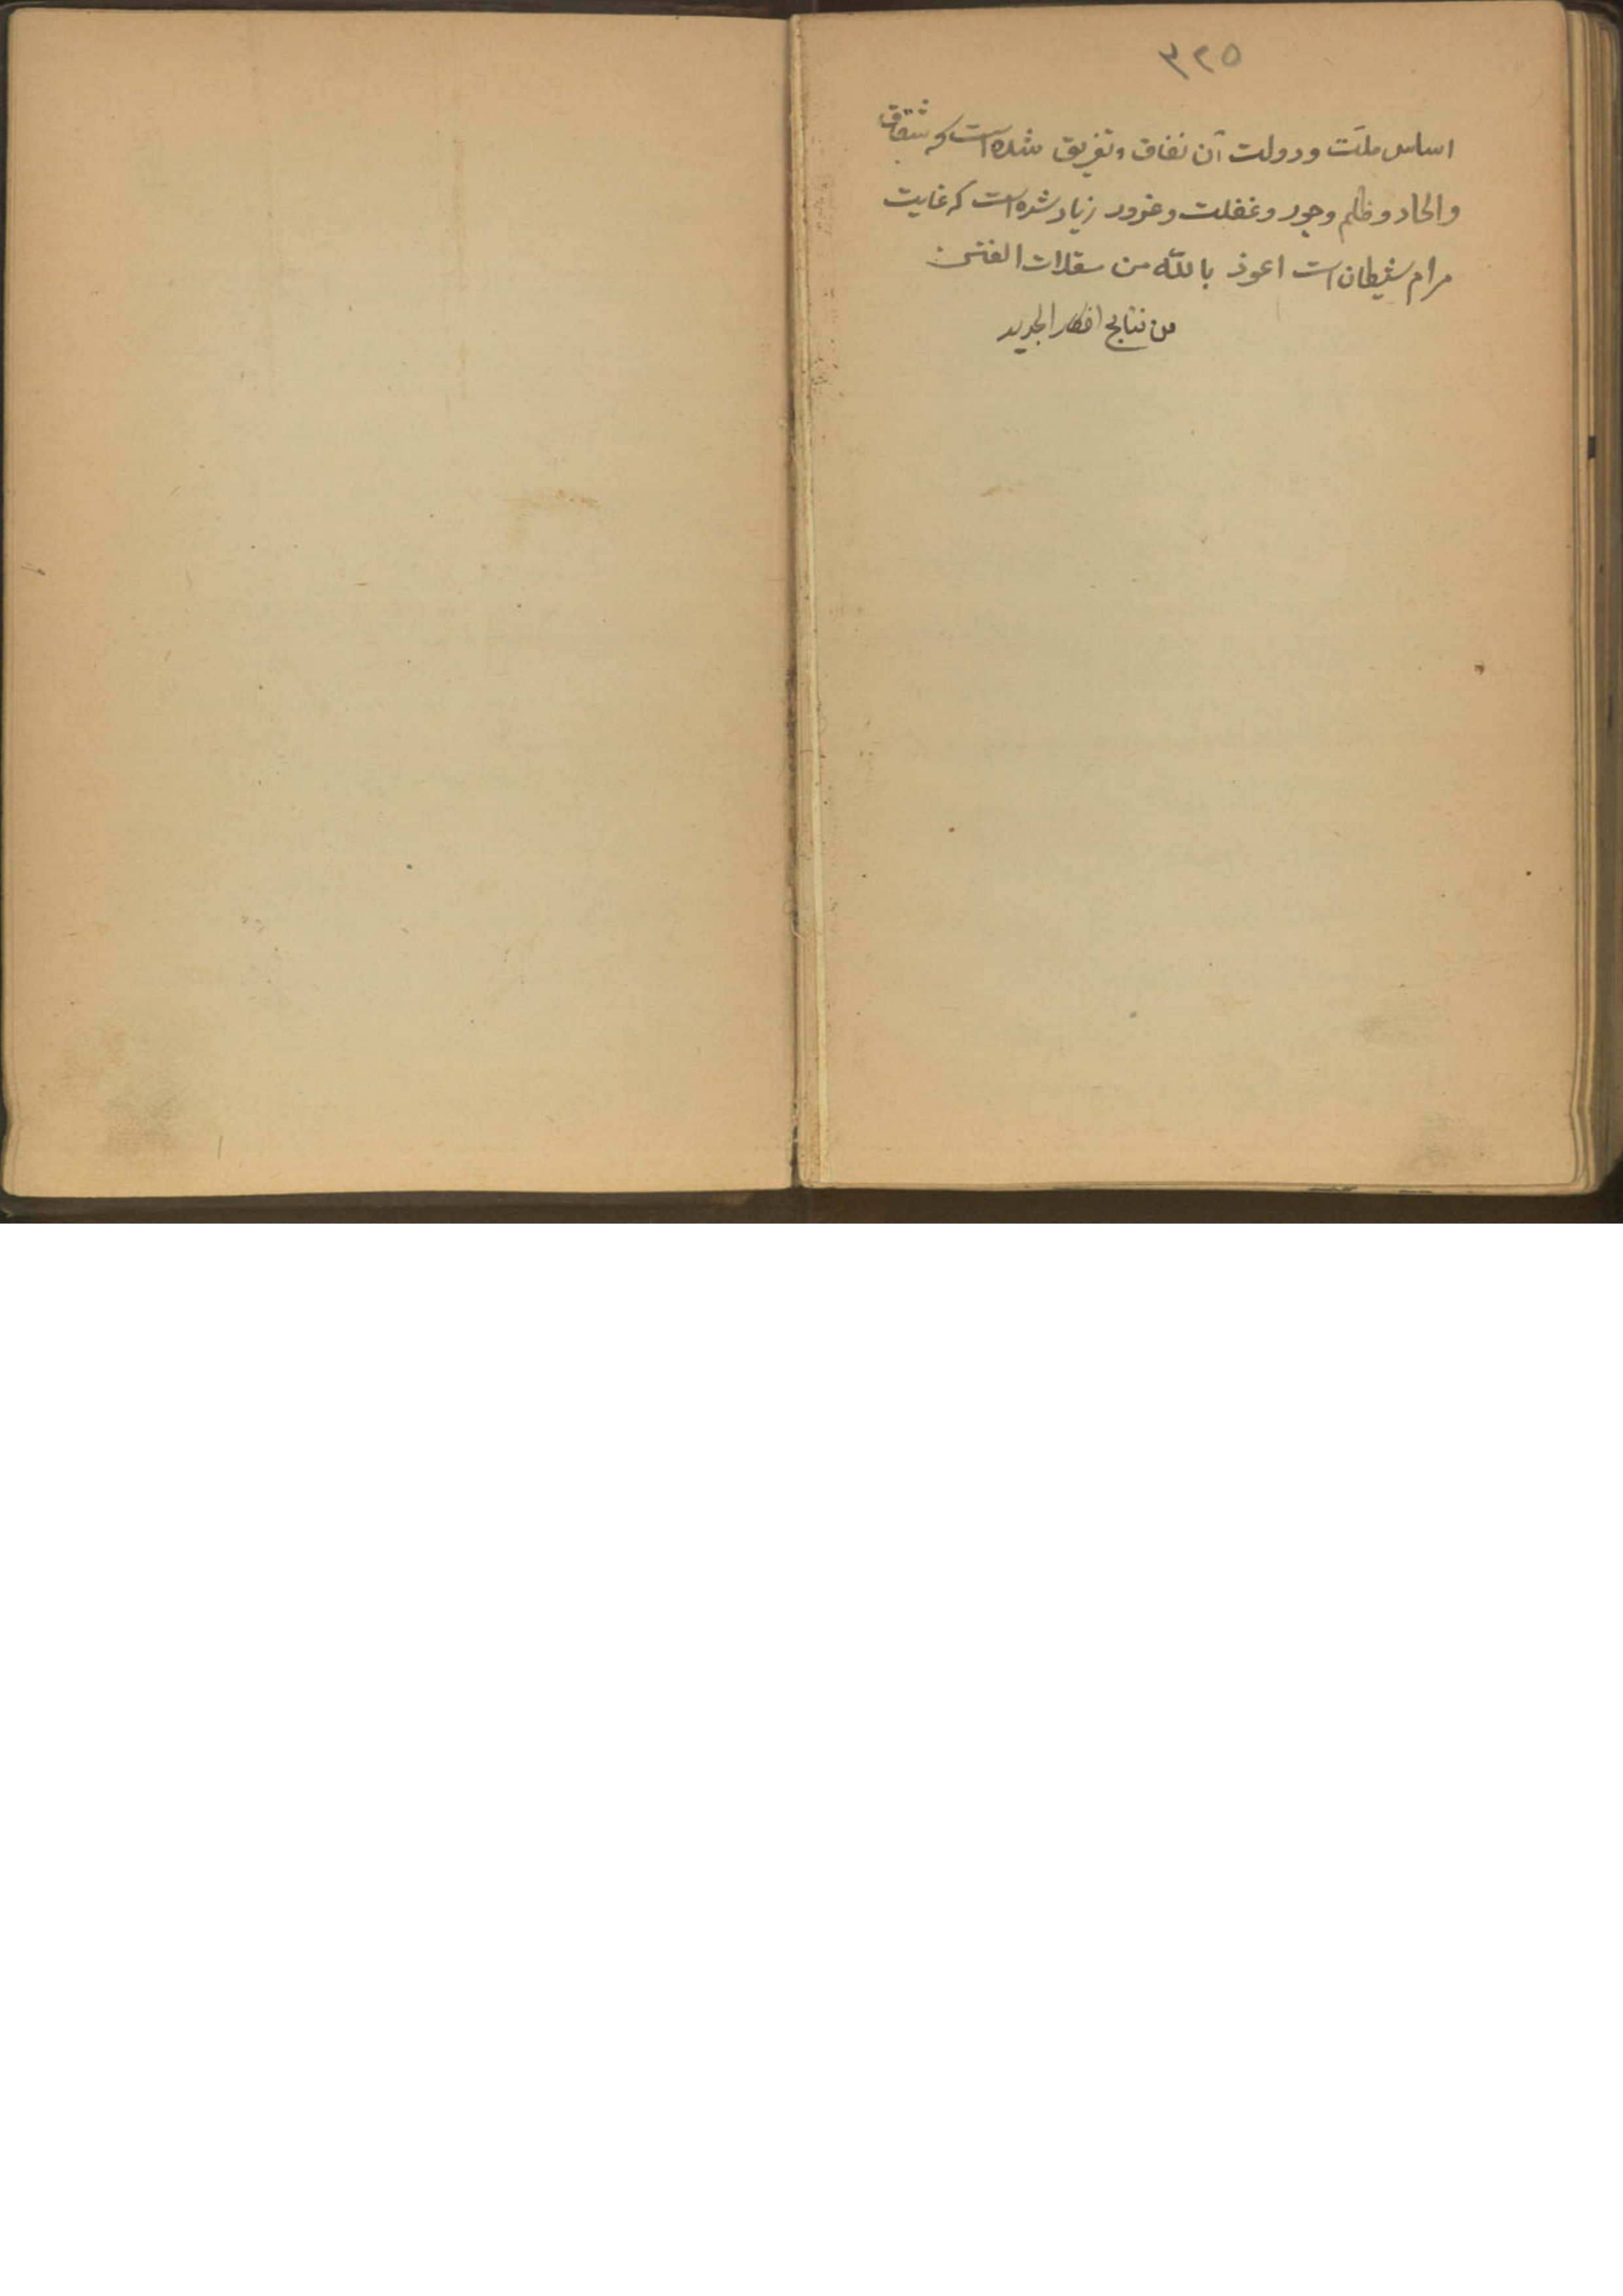 ۳۲۵
اساس ملّت و دولت آن نفاق و تفریق شده است که شقاق
والحاد و ظلم وجور وغفلت وغرور زیاد شده است که غایت
مرام شیطان است اعوذ باللّه من الفتن
من نتایج افکار الجدید